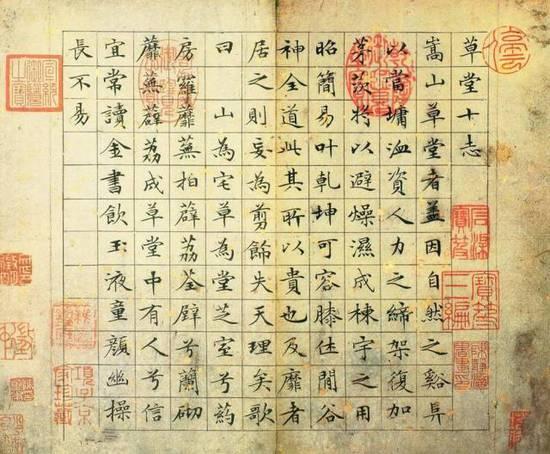 草堂十志
嵩山草堂者盖因自然之谿阜
以當墉洫資人力之締架復加
茅茨將以避燥濕成棟宇之用
昭簡易叶乾坤可容膝休閒谷
神全道此其所以貴也及靡者
居之則妄為剪飾失天理矣歌
曰 山為宅草為堂芝室兮葯
房羅蘼蕪拍薜荔荃壁兮蘭砌
蘼蕪薜荔成草堂中有人兮信
宜常讀金書飲玉液童顏幽操
長不易
石渠寶笈
寶笈三編
項子京家珍藏